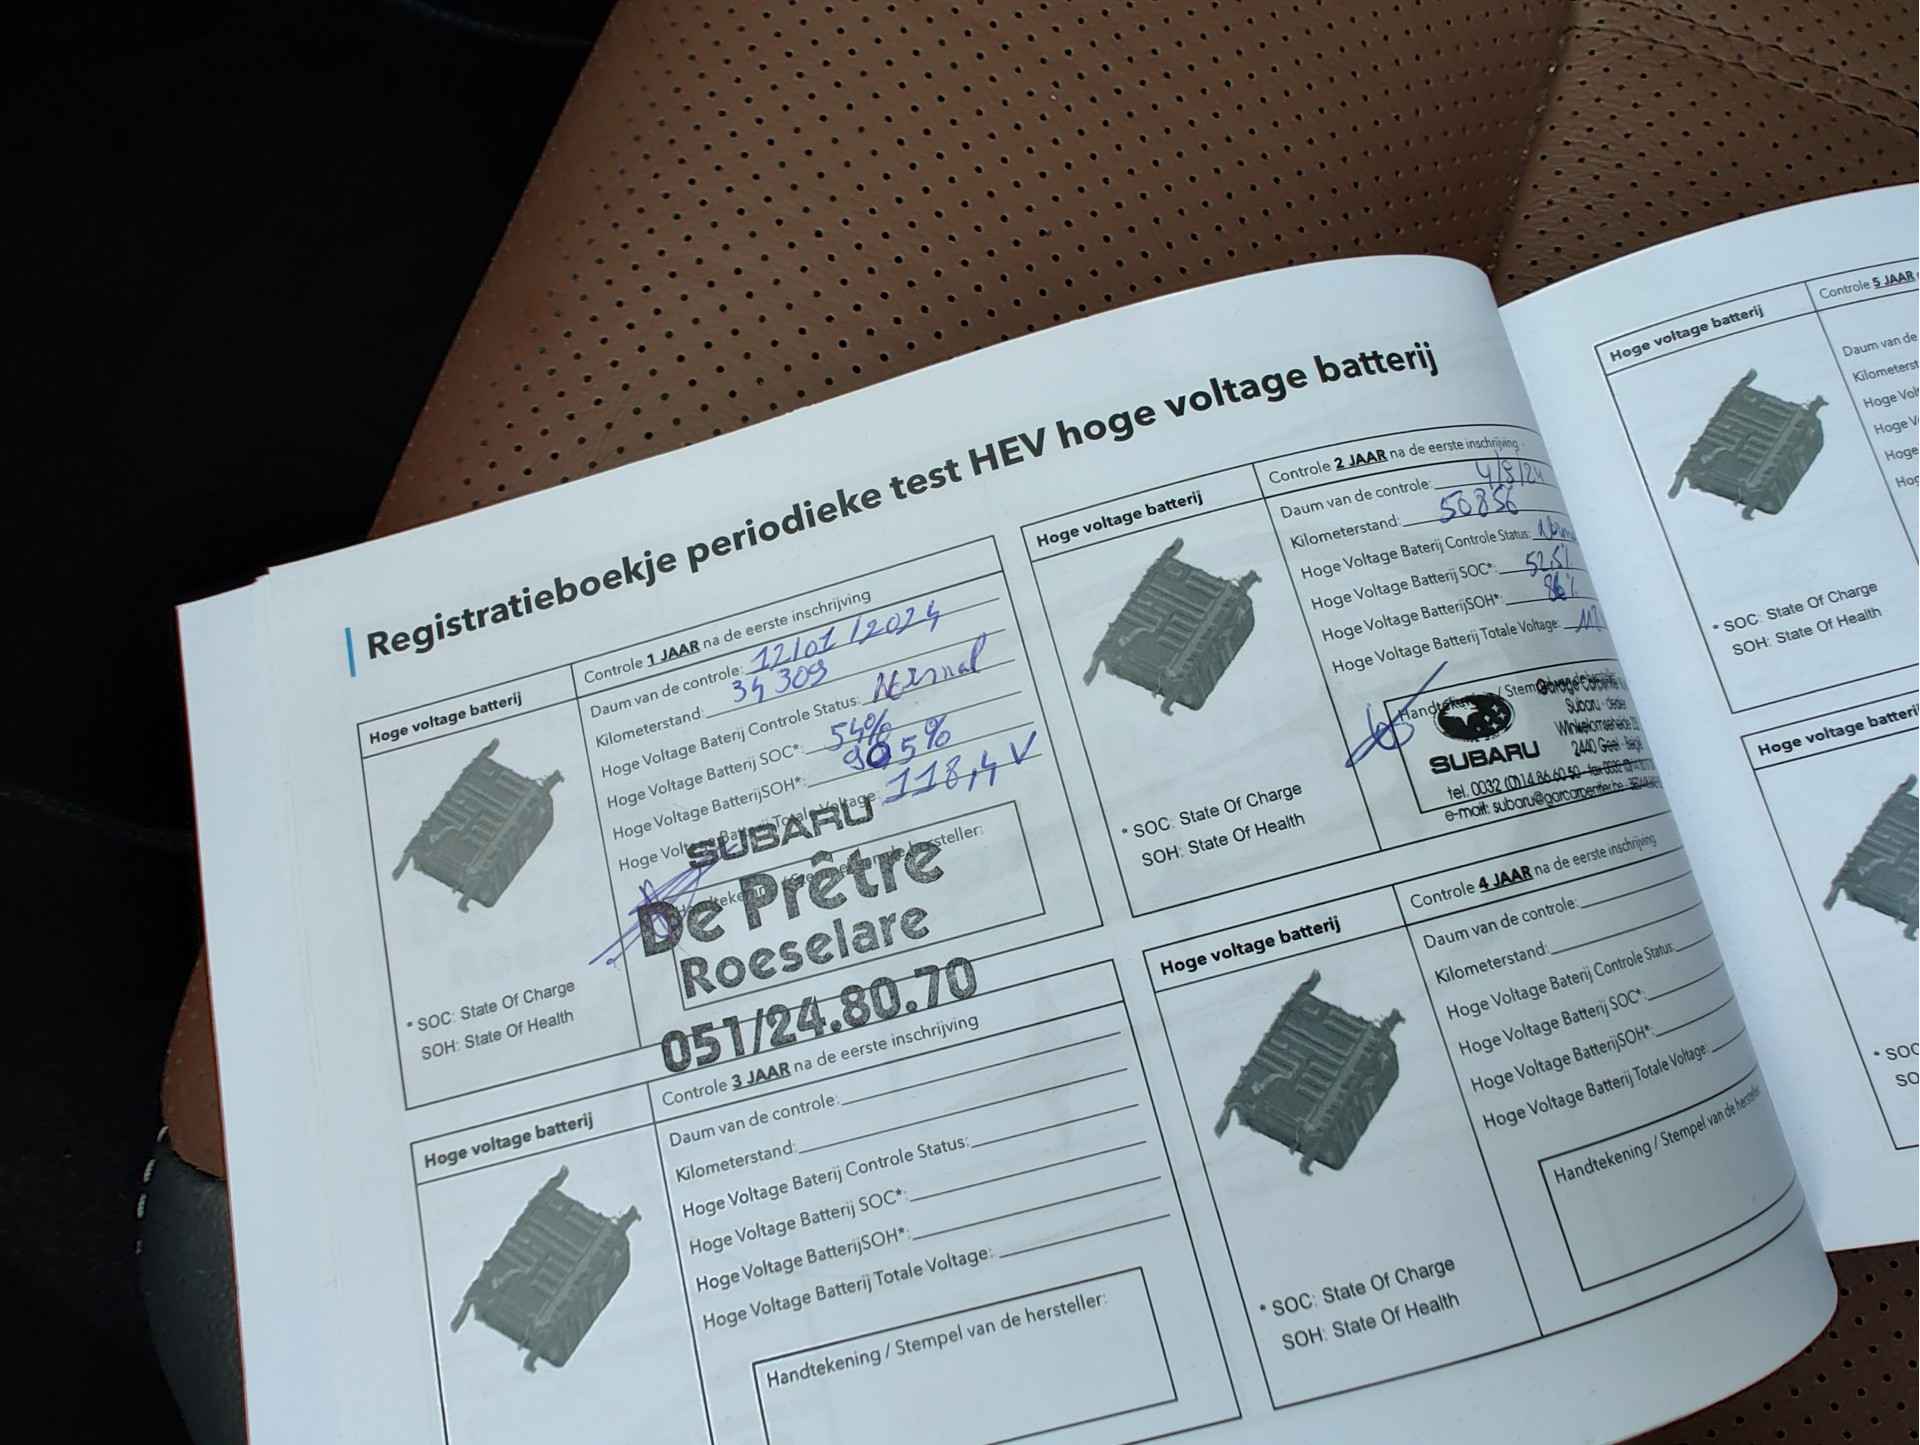 Registratieboekje periodieke test HEV hoge voltage batterij
Hoge voltage batterij
Controle 1 JAAR na de eerste inschrijving
Daum van de controle: 12/01/2024
Kilometerstand: 34 309
Hoge Voltage Baterij Controle Status: Normal
Hoge Voltage Batterij SOC*: 54%
Hoge Voltage BatterijSOH*:
Hoge Voltage Batterij Totale Voltage: 118,4 V
Handtekening hersteller:
SUBARU
De Prêtre
Roeselare
051/24.80.70
* SOC: State Of Charge
SOH: State Of Health
Hoge voltage batterij
Controle 2 JAAR na de eerste inschrijving
Daum van de controle:
Kilometerstand: 50856
Hoge Voltage Baterij Controle Status:
Hoge Voltage Batterij SOC*:
Hoge Voltage BatterijSOH*: 86%
Hoge Voltage Batterij Totale Voltage:
Handtekening / Stempel
Garage
Subaru
2440 Geel
SUBARU
tel. 0032
e-mail:
* SOC: State Of Charge
SOH: State Of Health
Hoge voltage batterij
Controle 3 JAAR na de eerste inschrijving
Daum van de controle:
Kilometerstand:
Hoge Voltage Baterij Controle Status:
Hoge Voltage Batterij SOC*:
Hoge Voltage BatterijSOH*:
Hoge Voltage Batterij Totale Voltage:
Handtekening / Stempel van de hersteller:
Hoge voltage batterij
Controle 4 JAAR na de eerste inschrijving
Daum van de controle:
Kilometerstand:
Hoge Voltage Baterij Controle Status:
Hoge Voltage Batterij SOC*:
Hoge Voltage BatterijSOH*:
Hoge Voltage Batterij Totale Voltage:
Handtekening / Stempel van de hersteller
* SOC: State Of Charge
SOH: State Of Health
Hoge voltage batterij
Controle 5 JAAR
Daum van de
Hoge
Hoge
Hoge
Hoge
* SOC: State Of Charge
SOH: State Of Health
Hoge voltage
* SOC